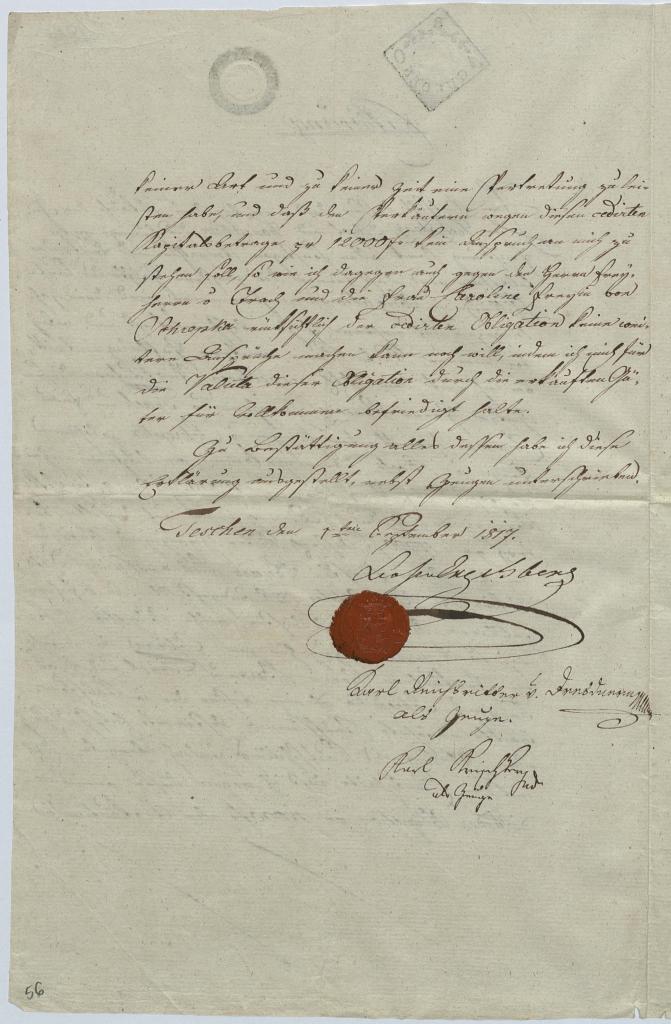 keiner Art und zu keiner Zeit eine Vertretung zu lei-
sten habe, und daß den Verkäufern wegen diesen cedirten
Kapitalsbetrage pr 12000 f. kein Anspruch an mich zu
stehen soll, so wie ich dagegen auch gegen den Herrn Frey-
herrn v und die Frau Karoline Freyin von
rücksichtlich der cedirten Obligation keine wei-
tere Ansprüche machen kann noch will, indem ich mich für
die Valuta dieser Obligation durch die erkauften Gü-
ter für vollkommen befriedigt halte.
Zu Bestättigung alles dessen habe ich diese
Erklärung ausgestellt, nebst Zeugen unterschrieben.
Teschen den 1ten September 1817.
Karl Reichsritter v.
als Zeuge.
Karl
als Zeuge
56